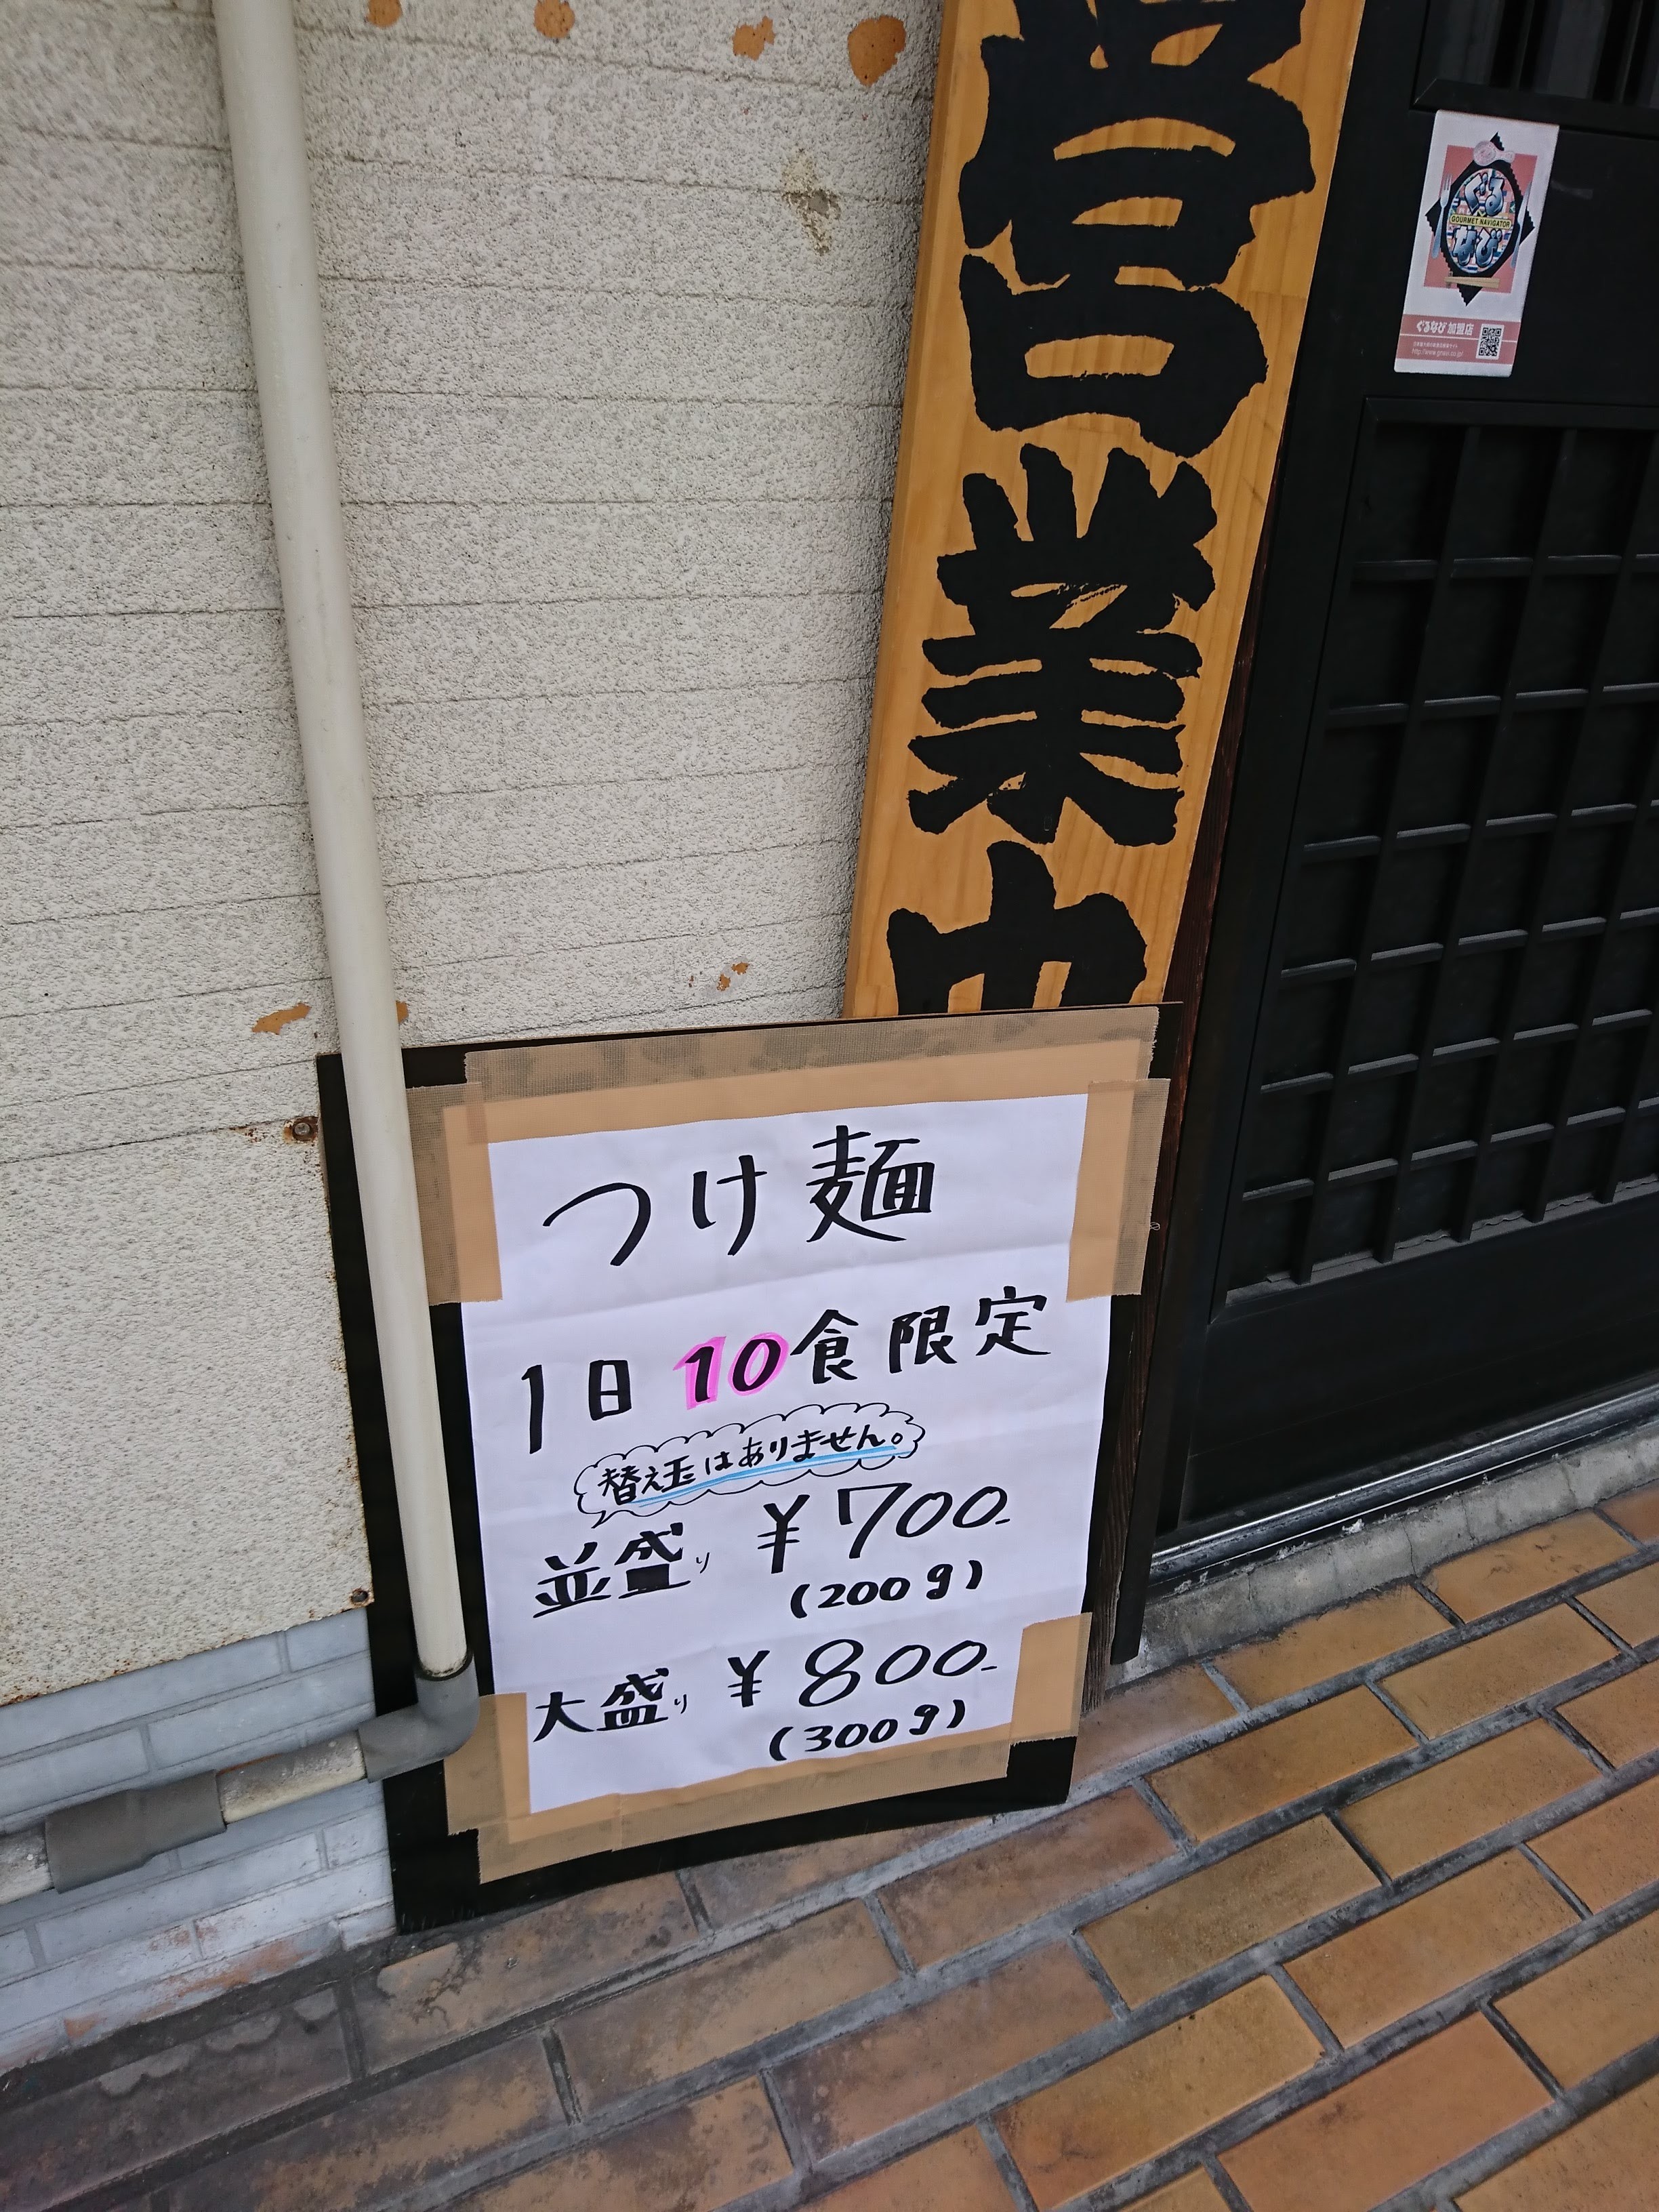 営業中
ぐるなび
GOURMET NAVIGATOR
ぐるなび 加盟店
つけ麺
1日10食限定
替え玉はありません。
並盛り ¥700-
(200g)
大盛り ¥800-
(300g)